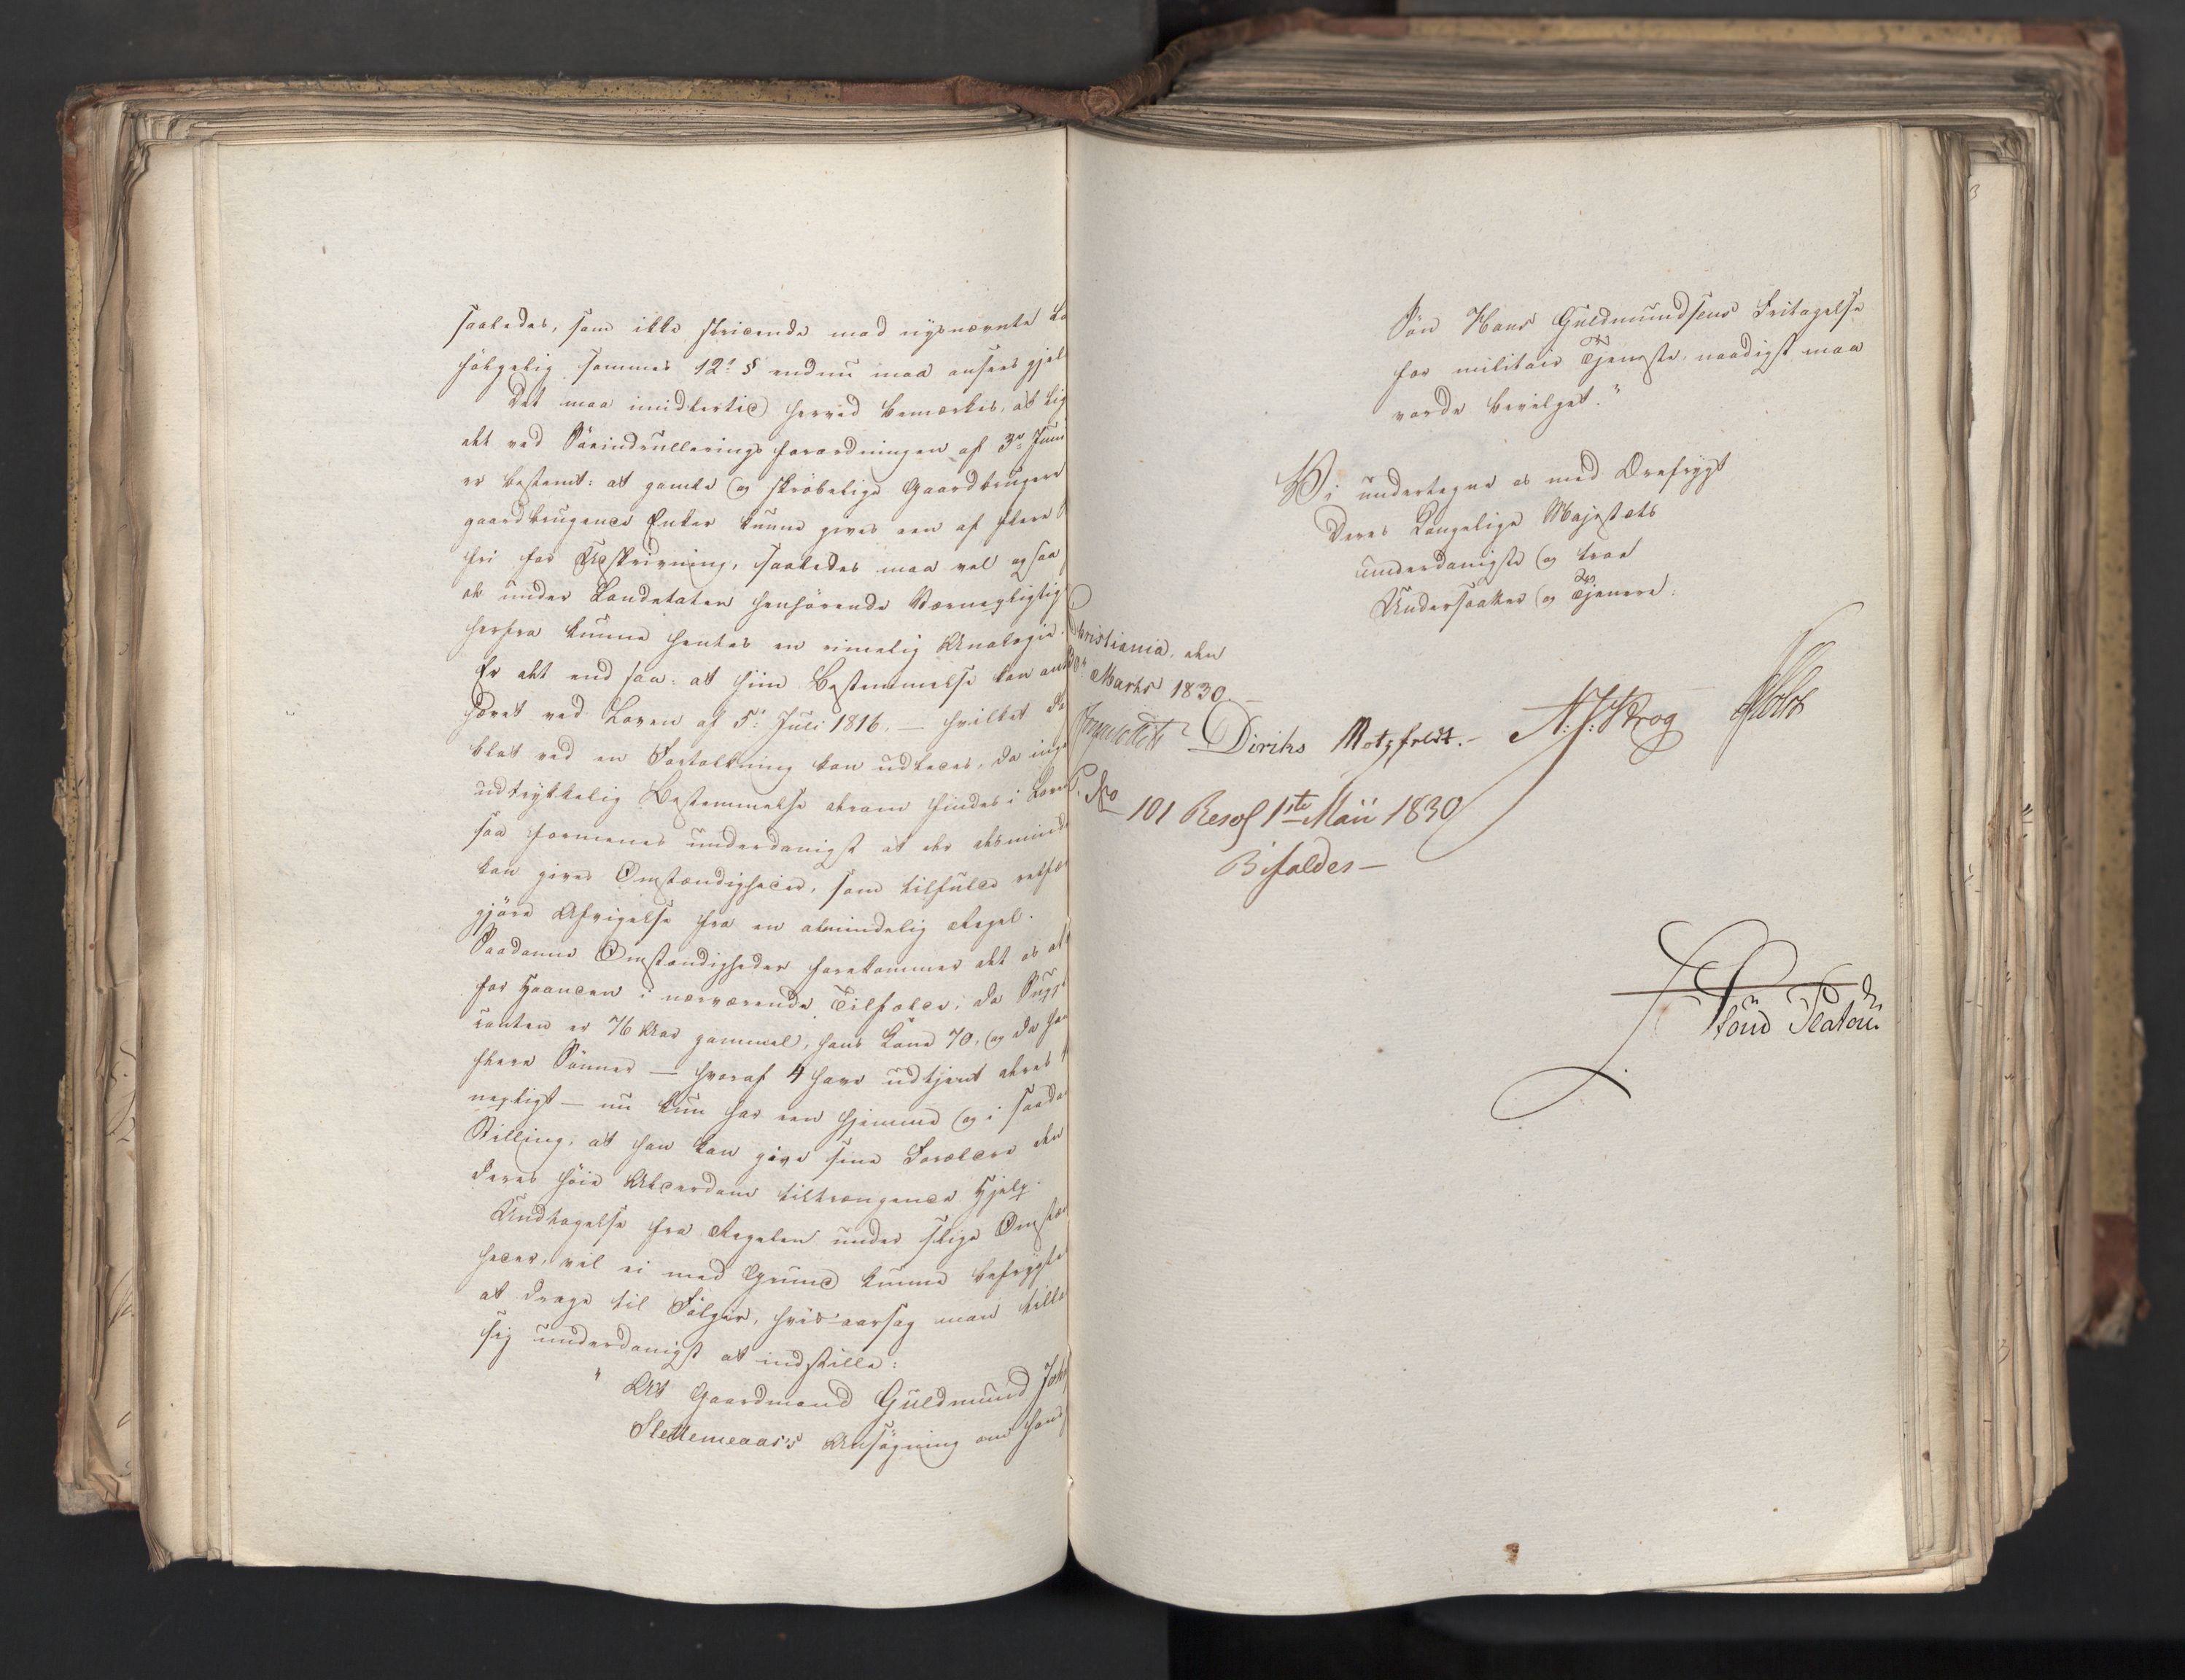 saaledes, som ikke stridende mod nysnævnte Lo
følgelig sammes 12te § endnu maa ansees gjel
Det maa imidlertid herved bemærkes, at lig
det ved Söeindrulleringsforordningen af 3die Juni
er bestemt: at gamle og skrøbelige Gaardbrugere
gaardbrugende Enker kunne gives een af flere
fri for Udskrivning, saaledes maa vel ogsaa
de under Landetaten henhørende Værnepligtig
herfra kunne hentes en rimelig Analogie.
Er det end saa: at hine Bestemmelse kan an
hævet ved Loven af 5te Juli 1816, — hvilket do
blot ved en Fortolkning kan udledes, da inge
udtrykkelig Bestemmelse derom findes i Loven
saa formenes underdanigst at der desmind
kan gives Omstændigheder, som tilfulde retfæ
gjöre Afvigelse fra en almindelig Regel.
Saadanne Omstændigheder forekommer det os at
for Haanden i nærværende Tilfælde, da Suppl
canten er 76 Aar gammel, hans Kone 70, og da han
flere Sønner — hvoraf 4 have udtjent deres
nepligt — nu kun har een hjemme og i saada
Stilling, at han kan give sine Forældre den
deres høie Alderdom tiltrængende Hjelp.
Undtagelse fra Regelen under slige Omstæn
heder, vil ei med Grund kunne befrygte
at drage til Følger, hvis aarsag man tilla
sig underdanigst at indstille:
" At Gaardmand Guldmund Joh
Slettemeaas's Ansøgning om hans
Søn Hans Guldmundsens Fritagelse
for militair Tjeneste, naadigst maa
vorde bevilget."
Vi undertegne os med Ærefrygt
Deres Kongelige Majestæts
underdanigste og troe
Undersaatter og Tjenere.
Christiania, den
30te Marts 1830.
Diriks Motzfeldt. A. J. Krog Holst
P. No 101 Resol 1ste Maii 1830
Bifaldes —